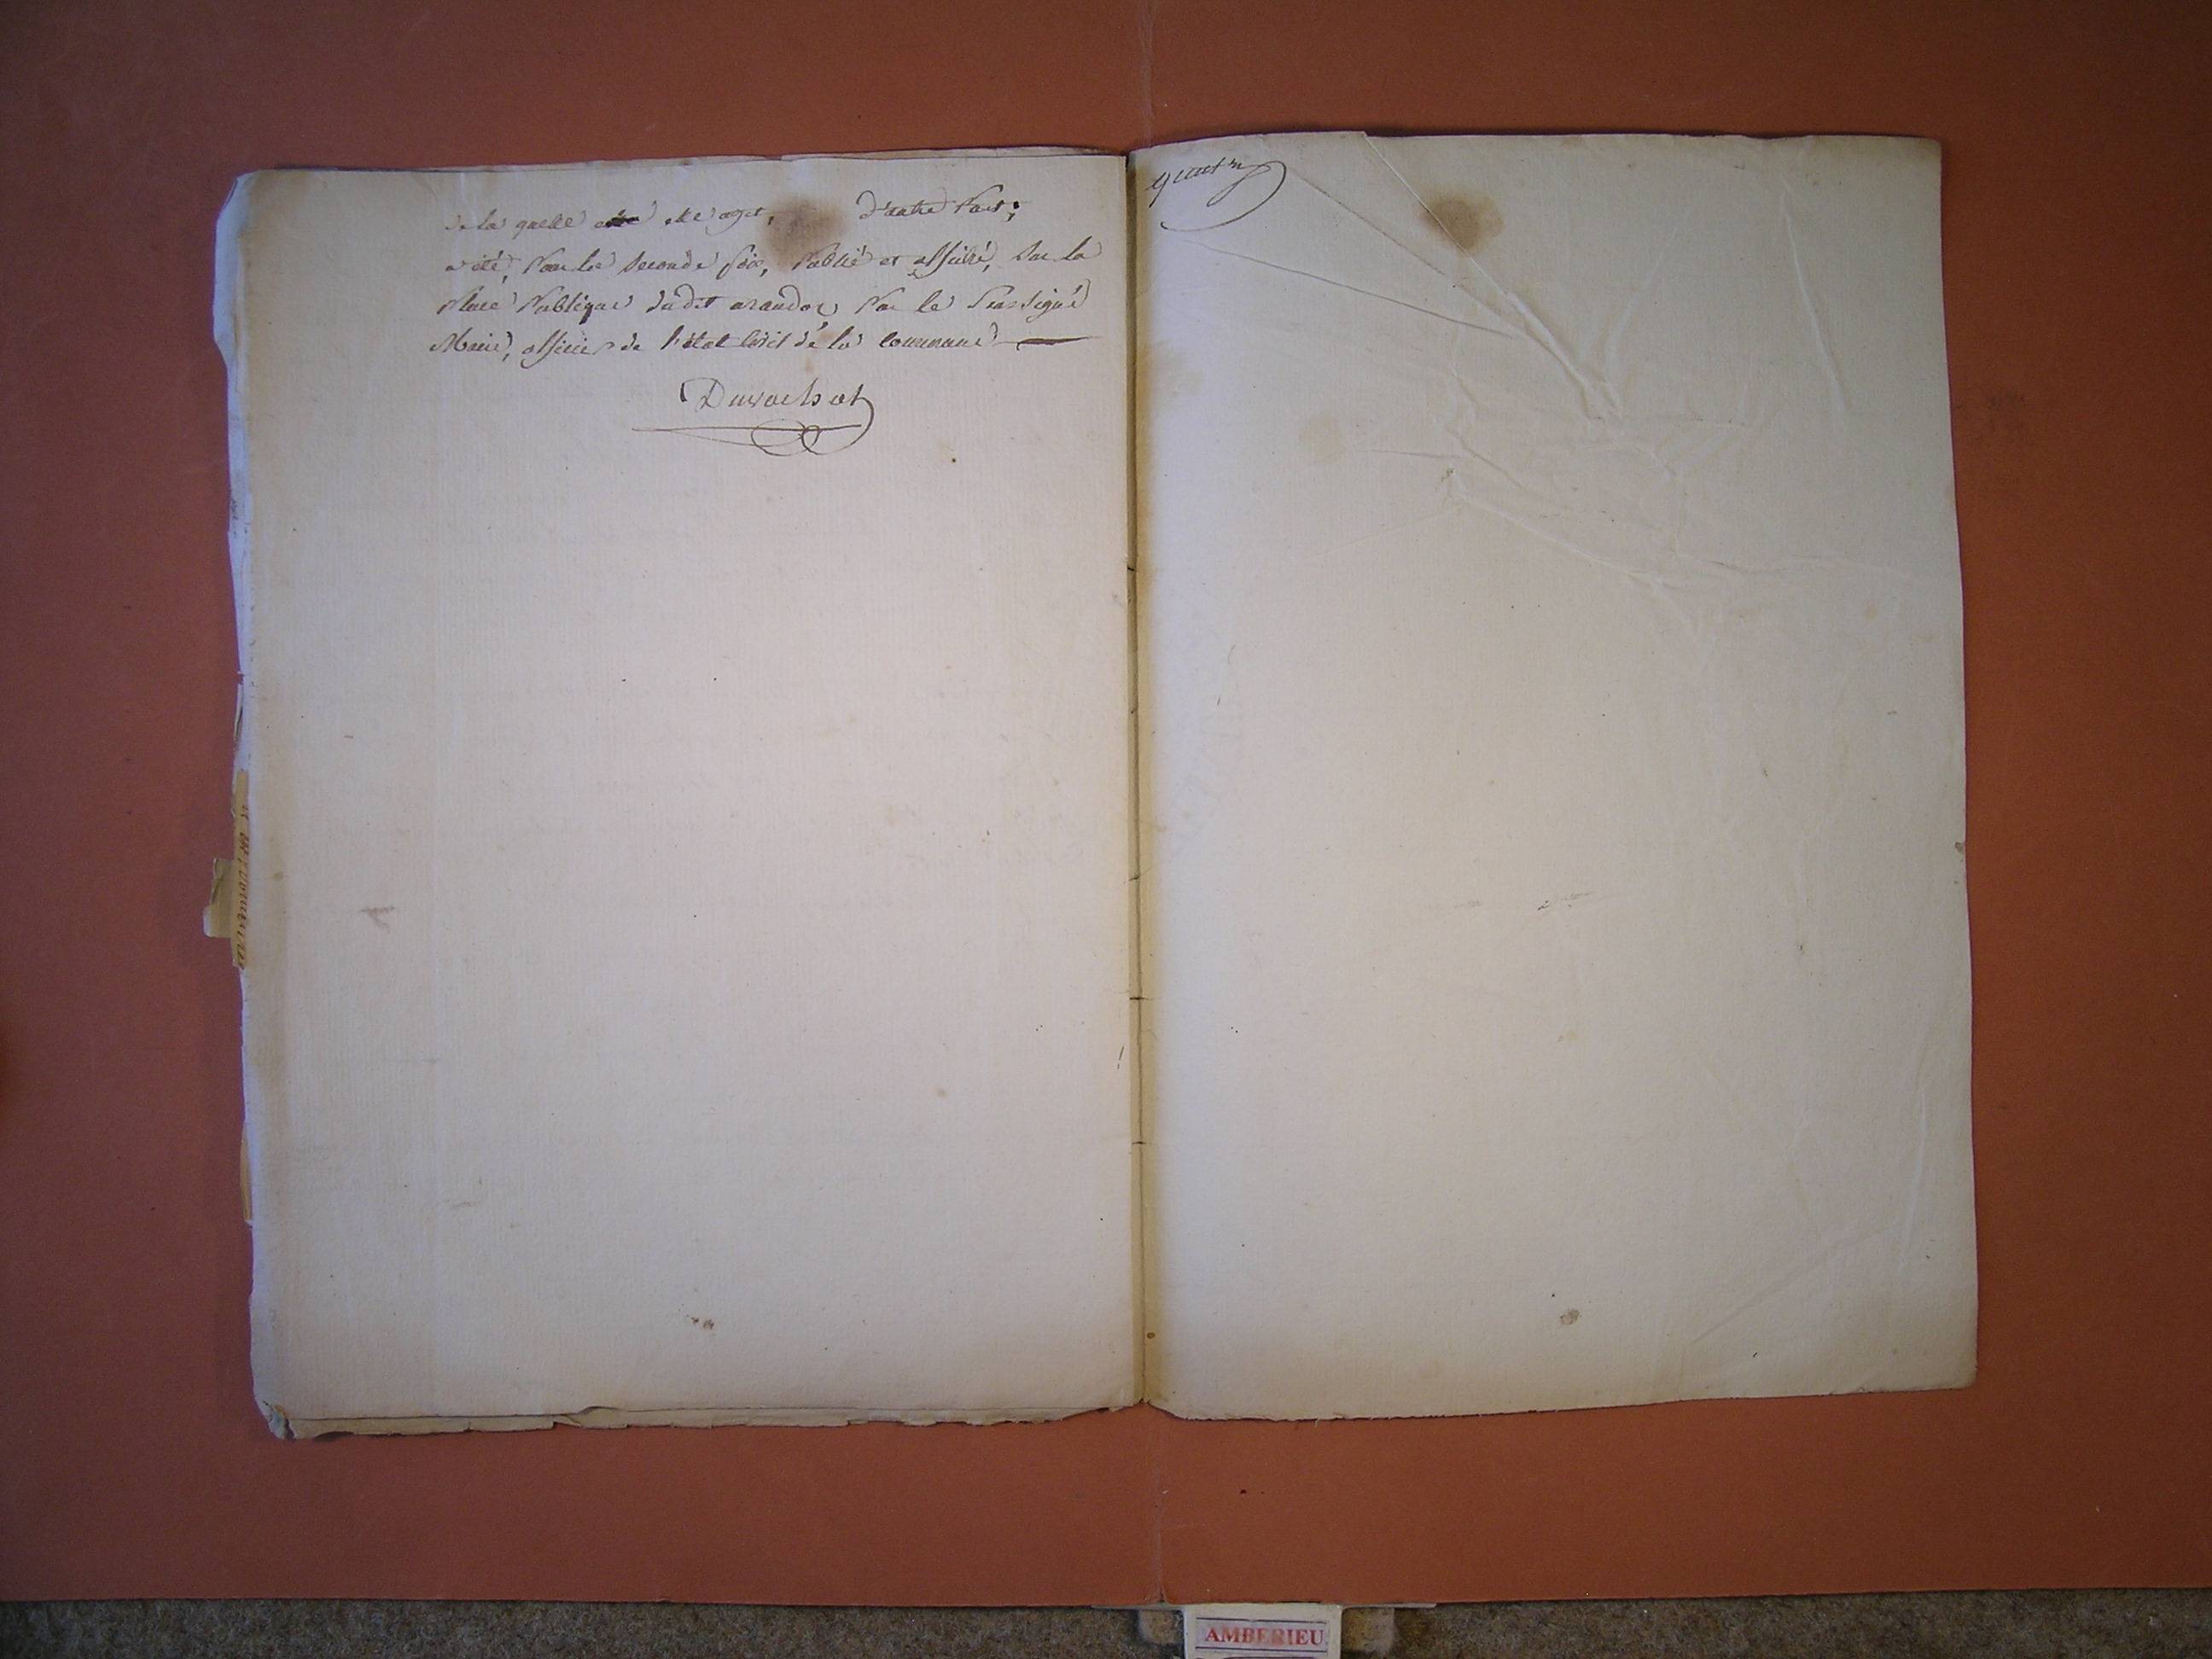 de la quelle elle agit, d'autre Part;
a été, Pour la seconde fois, Publié et affiché, Sur la
Place Publique dudit arandas Par le Soussigné
Maire, officier de l'état Civil de la commune
Duvachat
AMBERIEU